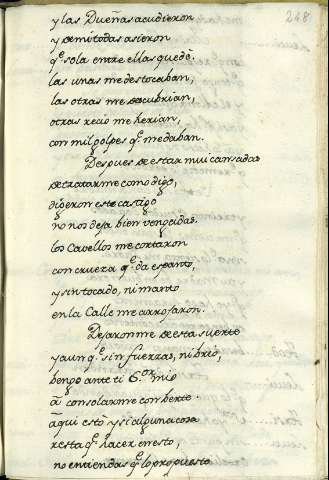 248
y las Dueñas acudieron
y de mi todas asieron
q.e sola entre ellas quedè.
las unas me destocaban,
las otras me descubrian,
otras recio me herian,
con mil golpes q.e me daban.
Despues de estar mui cansadas
de tratarme como digo,
digeron este castigo
no nos deja bien vengadas.
los Cavellos me cortaron
con crueza q.e da espanto,
y sin tocado, ni manto
en la Calle me arrojaron.
Dejaronme de esta suerte
y aunq.e sin fuerzas, ni brio,
bengo ante ti S.or mio
à consolarme con berte.
àqui estò y si alguna cosa
resta q.e hacer en esto,
no entiendas q.e lo propuesto